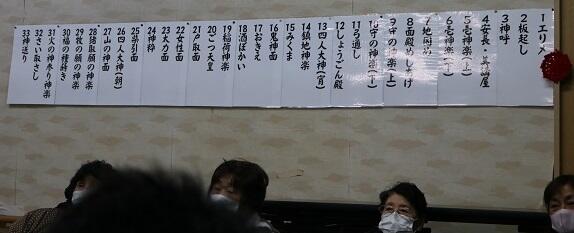 1エリメ
2板起し
3神呼
4安長・
5壱神楽(上)
6壱神楽(下)
7地固め
8面殿めしあげ
9守の神楽(上)
10守の神楽(下)
11ろ通し
12しょうごん殿
13四人大神(宵)
14鎮地神楽
15みくま
16鬼神面
17おきえ
18酒ばかい
19稲荷神楽
20ごつ天皇
21戸取面
22女性面
23太力面
24神粋
25柴引面
26四人大神(朝)
27山の神面
28猪取願の神楽
29牧の願の神楽
30福の種蒔き
31火の神参り神楽
32さい取さし
33神送り